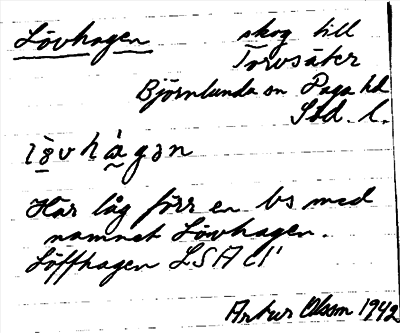 Lövhagen
skog till
Torvsäter
Björnlunda sn Daga hd
Söd. l.
lö̀vhàgən
Här låg förr en bs med
namnet Lövhagen.
Löffhagen LSA C1
Artur Olsson 1942